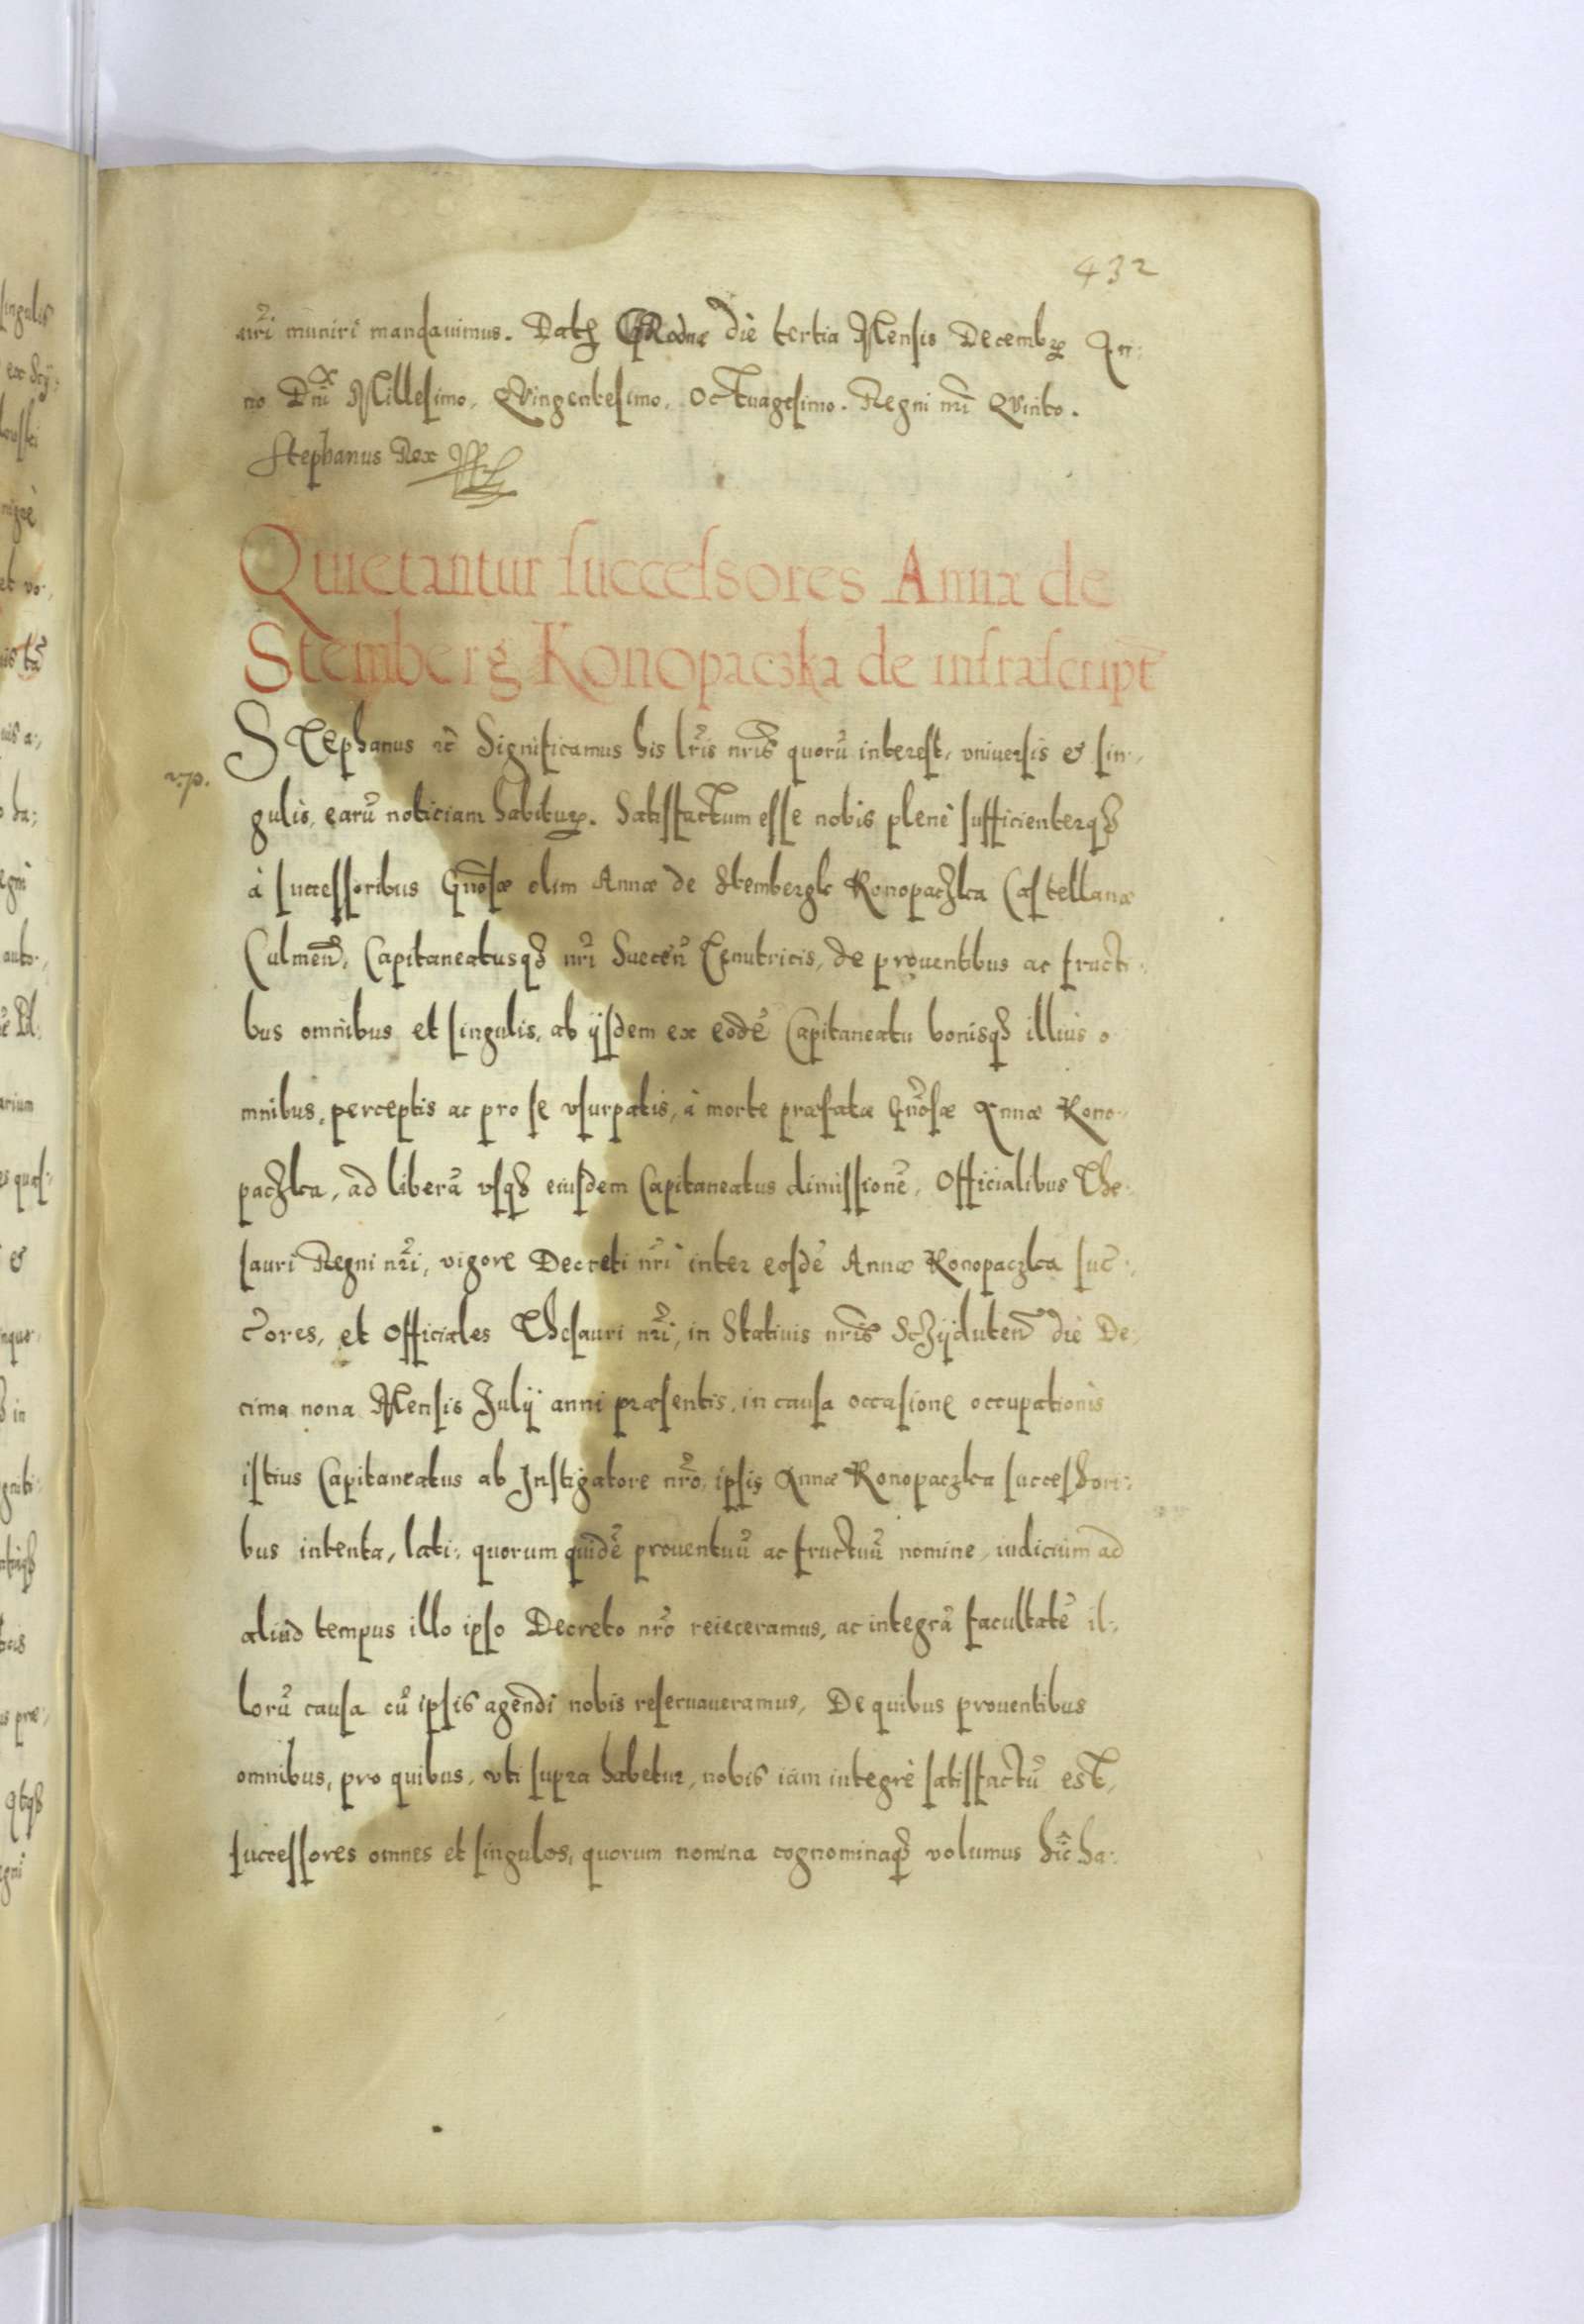 432
nr̃i muniri mandauimus. Datꝫ Grodnæ die tertia Mensis Decembꝝ An:
no Dn̄i Millesimo, Qvingentesimo, Octuagesimo. Regni nr̃i Qvinto.
Stephanus Rex
Quietantur successores Annæ de
Stemberg Konopaczka de infrascript̃
Stephanus ec̃ Significamus his lr̃is nr̃is quorũ interest, vniuersis & sin:
v.p.
gulis, earũ noticiam habituꝝ. Satisfactum esse nobis plenè sufficienterqȝ
à successoribus Gn̄osæ olim Annæ de Stembergk Konopaczka Castellanæ
Culmen̄, Capitaneatusqȝ nr̃i Suecen̄ Tenutricis, de prouentibus ac fructi:
bus omnibus et singulis, ab ijsdem ex eodẽ Capitaneatu bonisqȝ illius o
mnibus, perceptis ac pro se vsurpatis, à morte præfatæ Gn̄osæ Annæ Kono:
paczka, ad liberã vsqȝ eiusdem Capitaneatus dimissionẽ, Officialibus The:
sauri Regni nr̃i, vigore Decreti nr̃i inter eosdẽ Annæ Konopaczka suc̃:
c̃ores, et Officiales Thesauri nr̃i, in Statiuis nr̃is Sczÿduten̄ die De:
cima nona Mensis Julÿ anni præsentis, in causa occasione occupationis
istius Capitaneatus ab Instigatore nr̃o, ipsis Annæ Konopaczka successori:
bus intenta, lati: quorum quidẽ prouentuũ ac fructuũ nomine, iudicium ad
aliud tempus illo ipso Decreto nr̃o reieceramus, ac integrã facultatẽ il:
lorũ causa cũ ipsis agendi nobis reseruaueramus, De quibus prouentibus
omnibus, pro quibus, vti supra habetur, nobis iam integrè satisfactũ est,
successores omnes et singulos, quorum nomina cognominaqȝ volumus hîc ha: